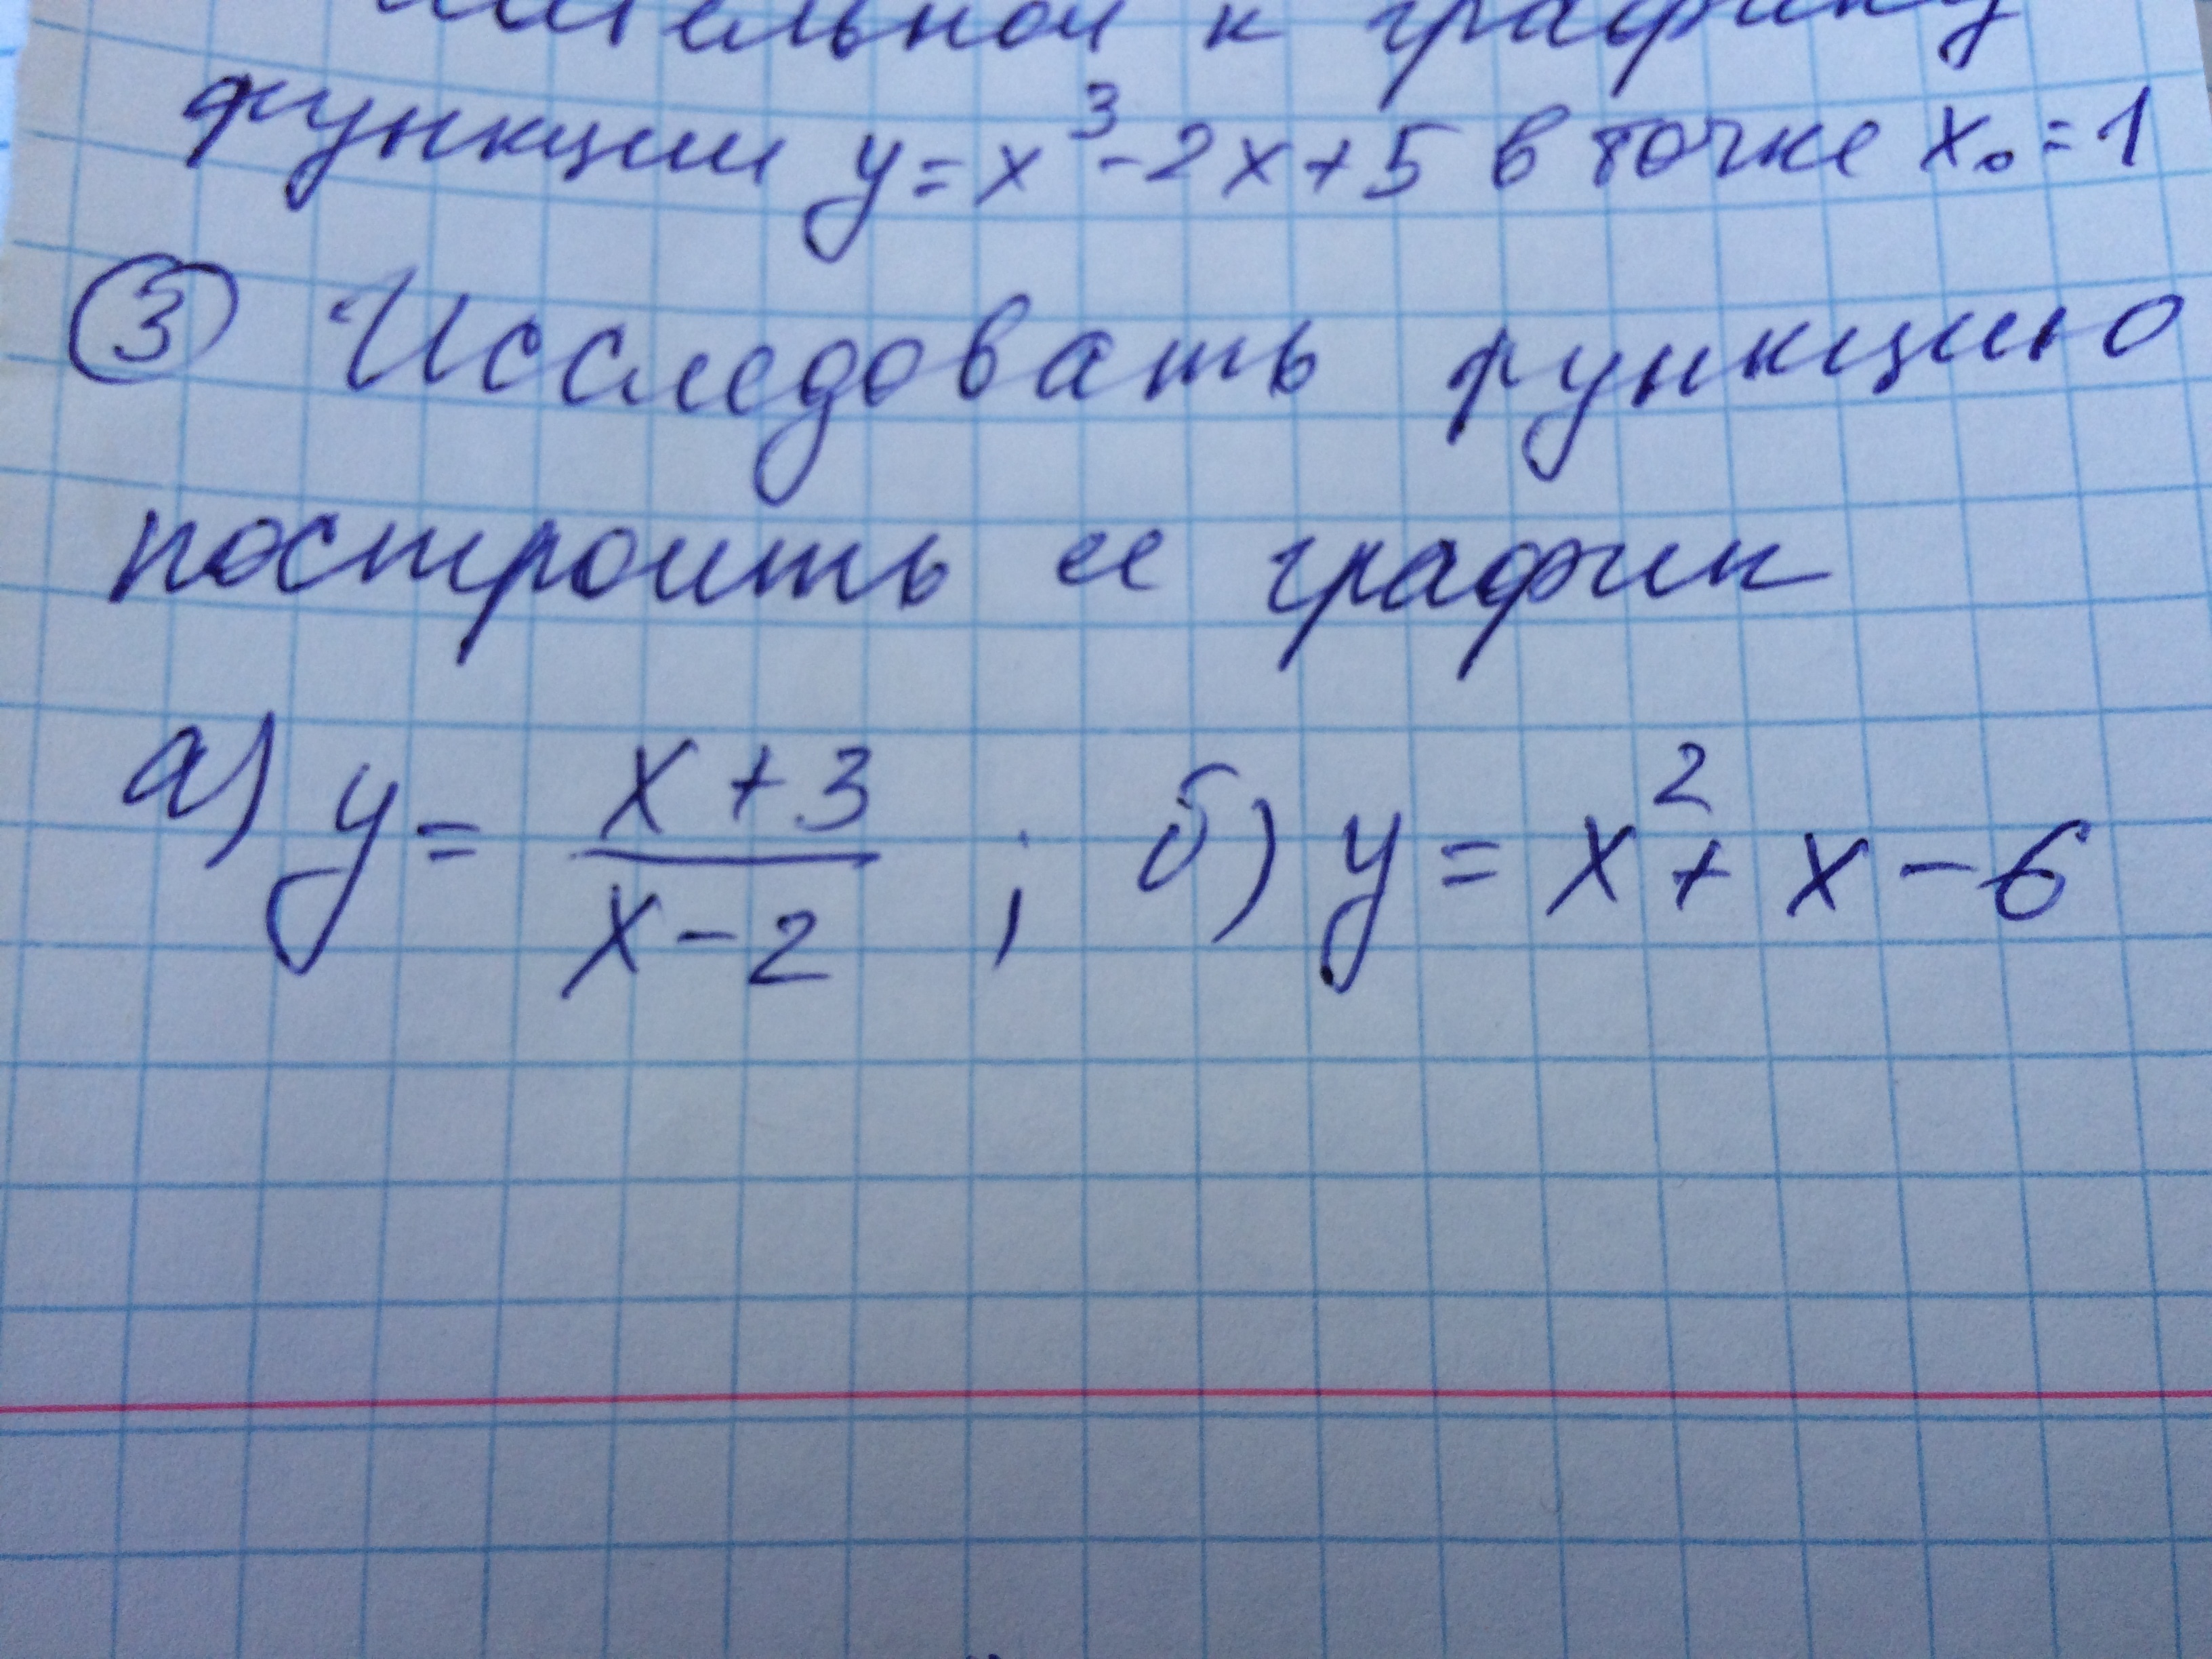 к графику
функции y = x³ - 2x + 5 в точке x₀ = 1
③ Исследовать функцию
построить ее график
а) y = \frac{x+3}{x-2} ; б) y = x² + x - 6